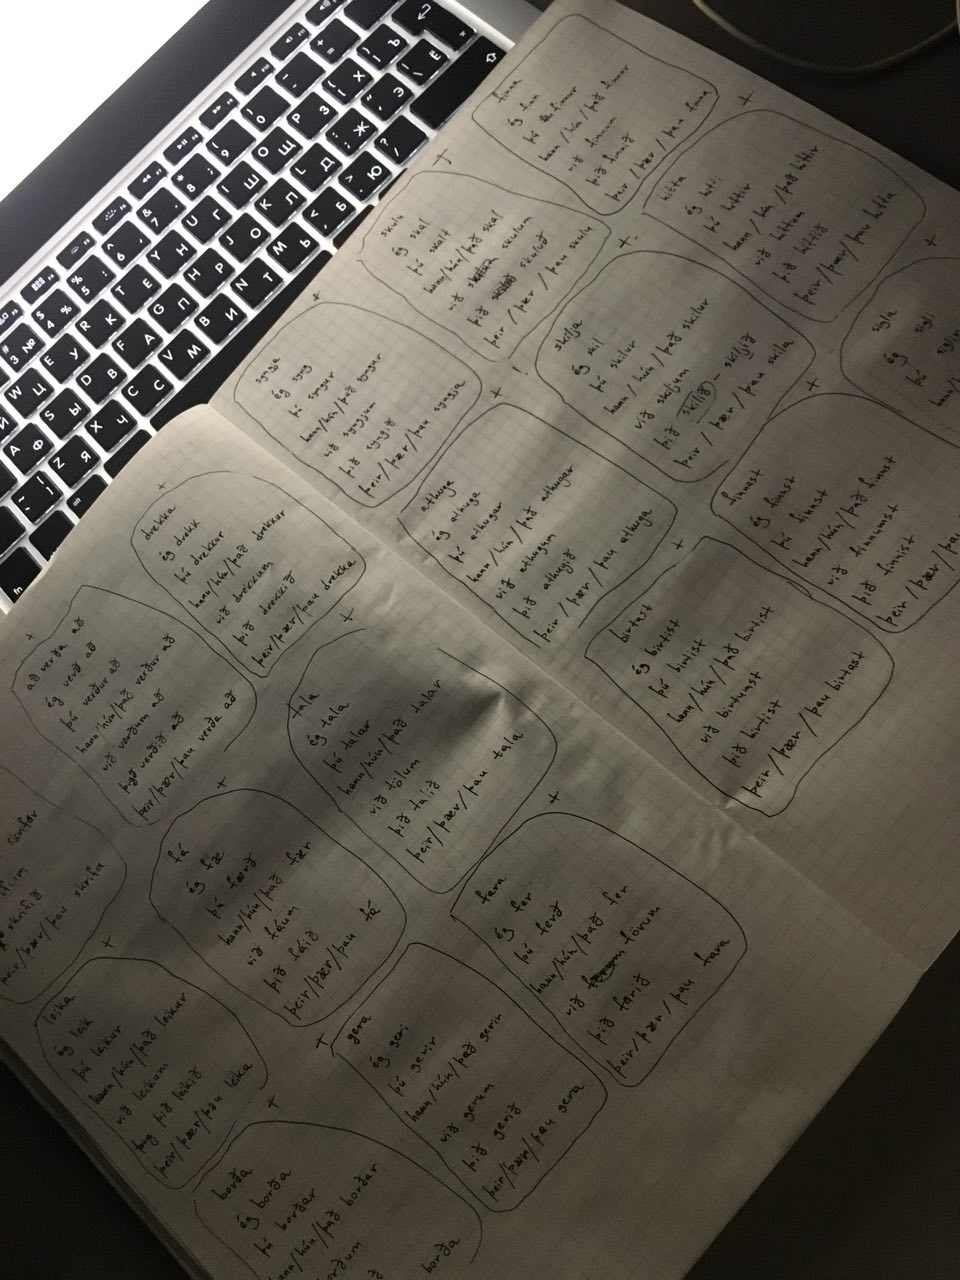 finna
ég finn
þú finnur
hann/hún/það finnur
við finnum
þið finnið
þeir/þær/þau finna
hitta
ég hitti
þú hittir
hann/hún/það hittir
við hittum
þið hittið
þeir/þær/þau hitta
skulu
ég skal
þú skalt
hann/hún/það skal
við skulum
þið skuluð
þeir/þær/þau skulu
skilja
ég skil
þú skilur
hann/hún/það skilur
við skiljum
þið skilið - skiljið
þeir/þær/þau skilja
sigla
ég sigli
þú siglir
syngja
ég syng
þú syngur
hann/hún/það syngur
við syngjum
þið syngið
þeir/þær/þau syngja
athuga
ég athuga
þú athugar
hann/hún/það athugar
við athugum
þið athugið
þeir/þær/þau athuga
finnast
ég finnst
þú finnst
hann/hún/það finnst
við finnumst
þið finnist
þeir/þær/þau
birtast
ég birtist
þú birtist
hann/hún/það birtist
við birtumst
þið birtist
þeir/þær/þau birtast
drekka
ég drekk
þú drekkur
hann/hún/það drekkur
við drekkum
þið drekkið
þeir/þær/þau drekka
að verða að
ég verð að
þú verður að
hann/hún/það verður að
við verðum að
þið verðið að
þeir/þær/þau verða að
tala
ég tala
þú talar
hann/hún/það talar
við tölum
þið talið
þeir/þær/þau tala
skrifar
skrifið
þeir/þær/þau skrifa
fá
ég fæ
þú færð
hann/hún/það fær
við fáum
þið fáið
þeir/þær/þau fá
fara
ég fer
þú ferð
hann/hún/það fer
við förum
þið farið
þeir/þær/þau fara
leika
ég leik
þú leikur
hann/hún/það leikur
við leikum
þið leikið
þeir/þær/þau leika
gera
ég geri
þú gerir
hann/hún/það gerir
við gerum
þið gerið
þeir/þær/þau gera
borða
ég borða
þú borðar
hann/hún/það borðar
borðum
borða